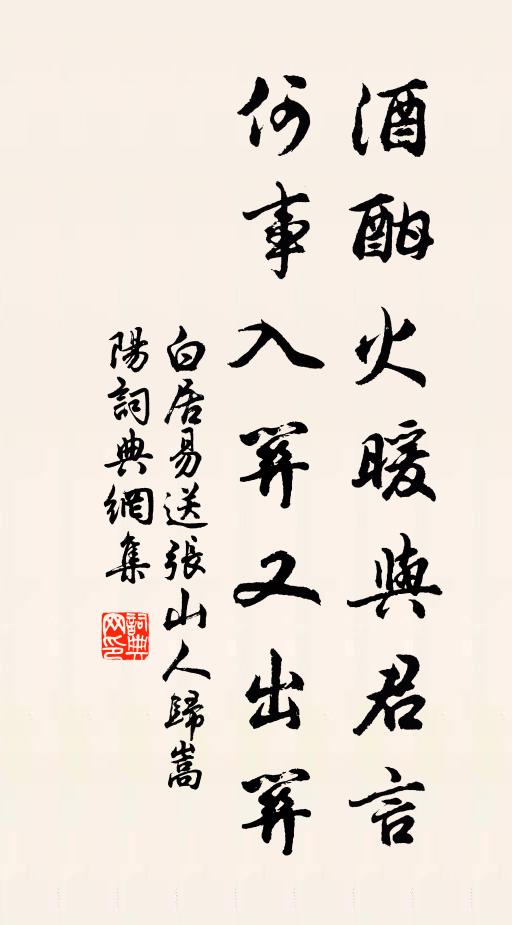 酒酣火暖與君言
何事入關又出關
白居易送張山人歸嵩
陽詞典網集
詞典
网印